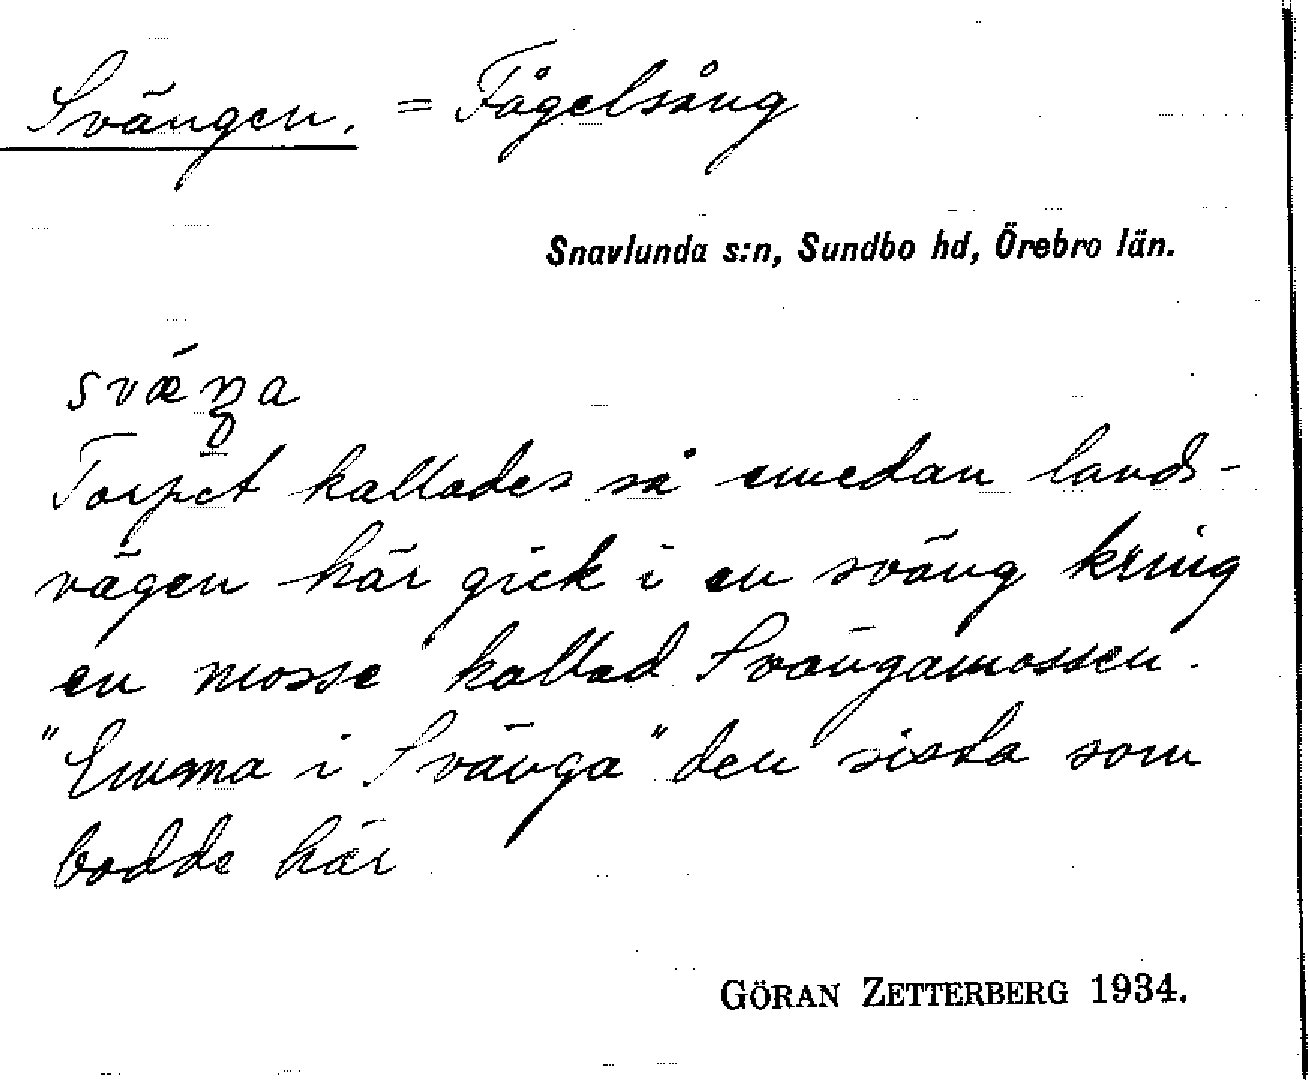 Svängen. = Fågelsång
Snavlunda s:n, Sundbo hd, Örebro län.
svǽŋa
Torpet kallades så emedan lands-
vägen här gick i en sväng kring
en mosse kallad Svängamossen.
"Emma i Svänga" den sista som
bodde här
GÖRAN ZETTERBERG 1934.